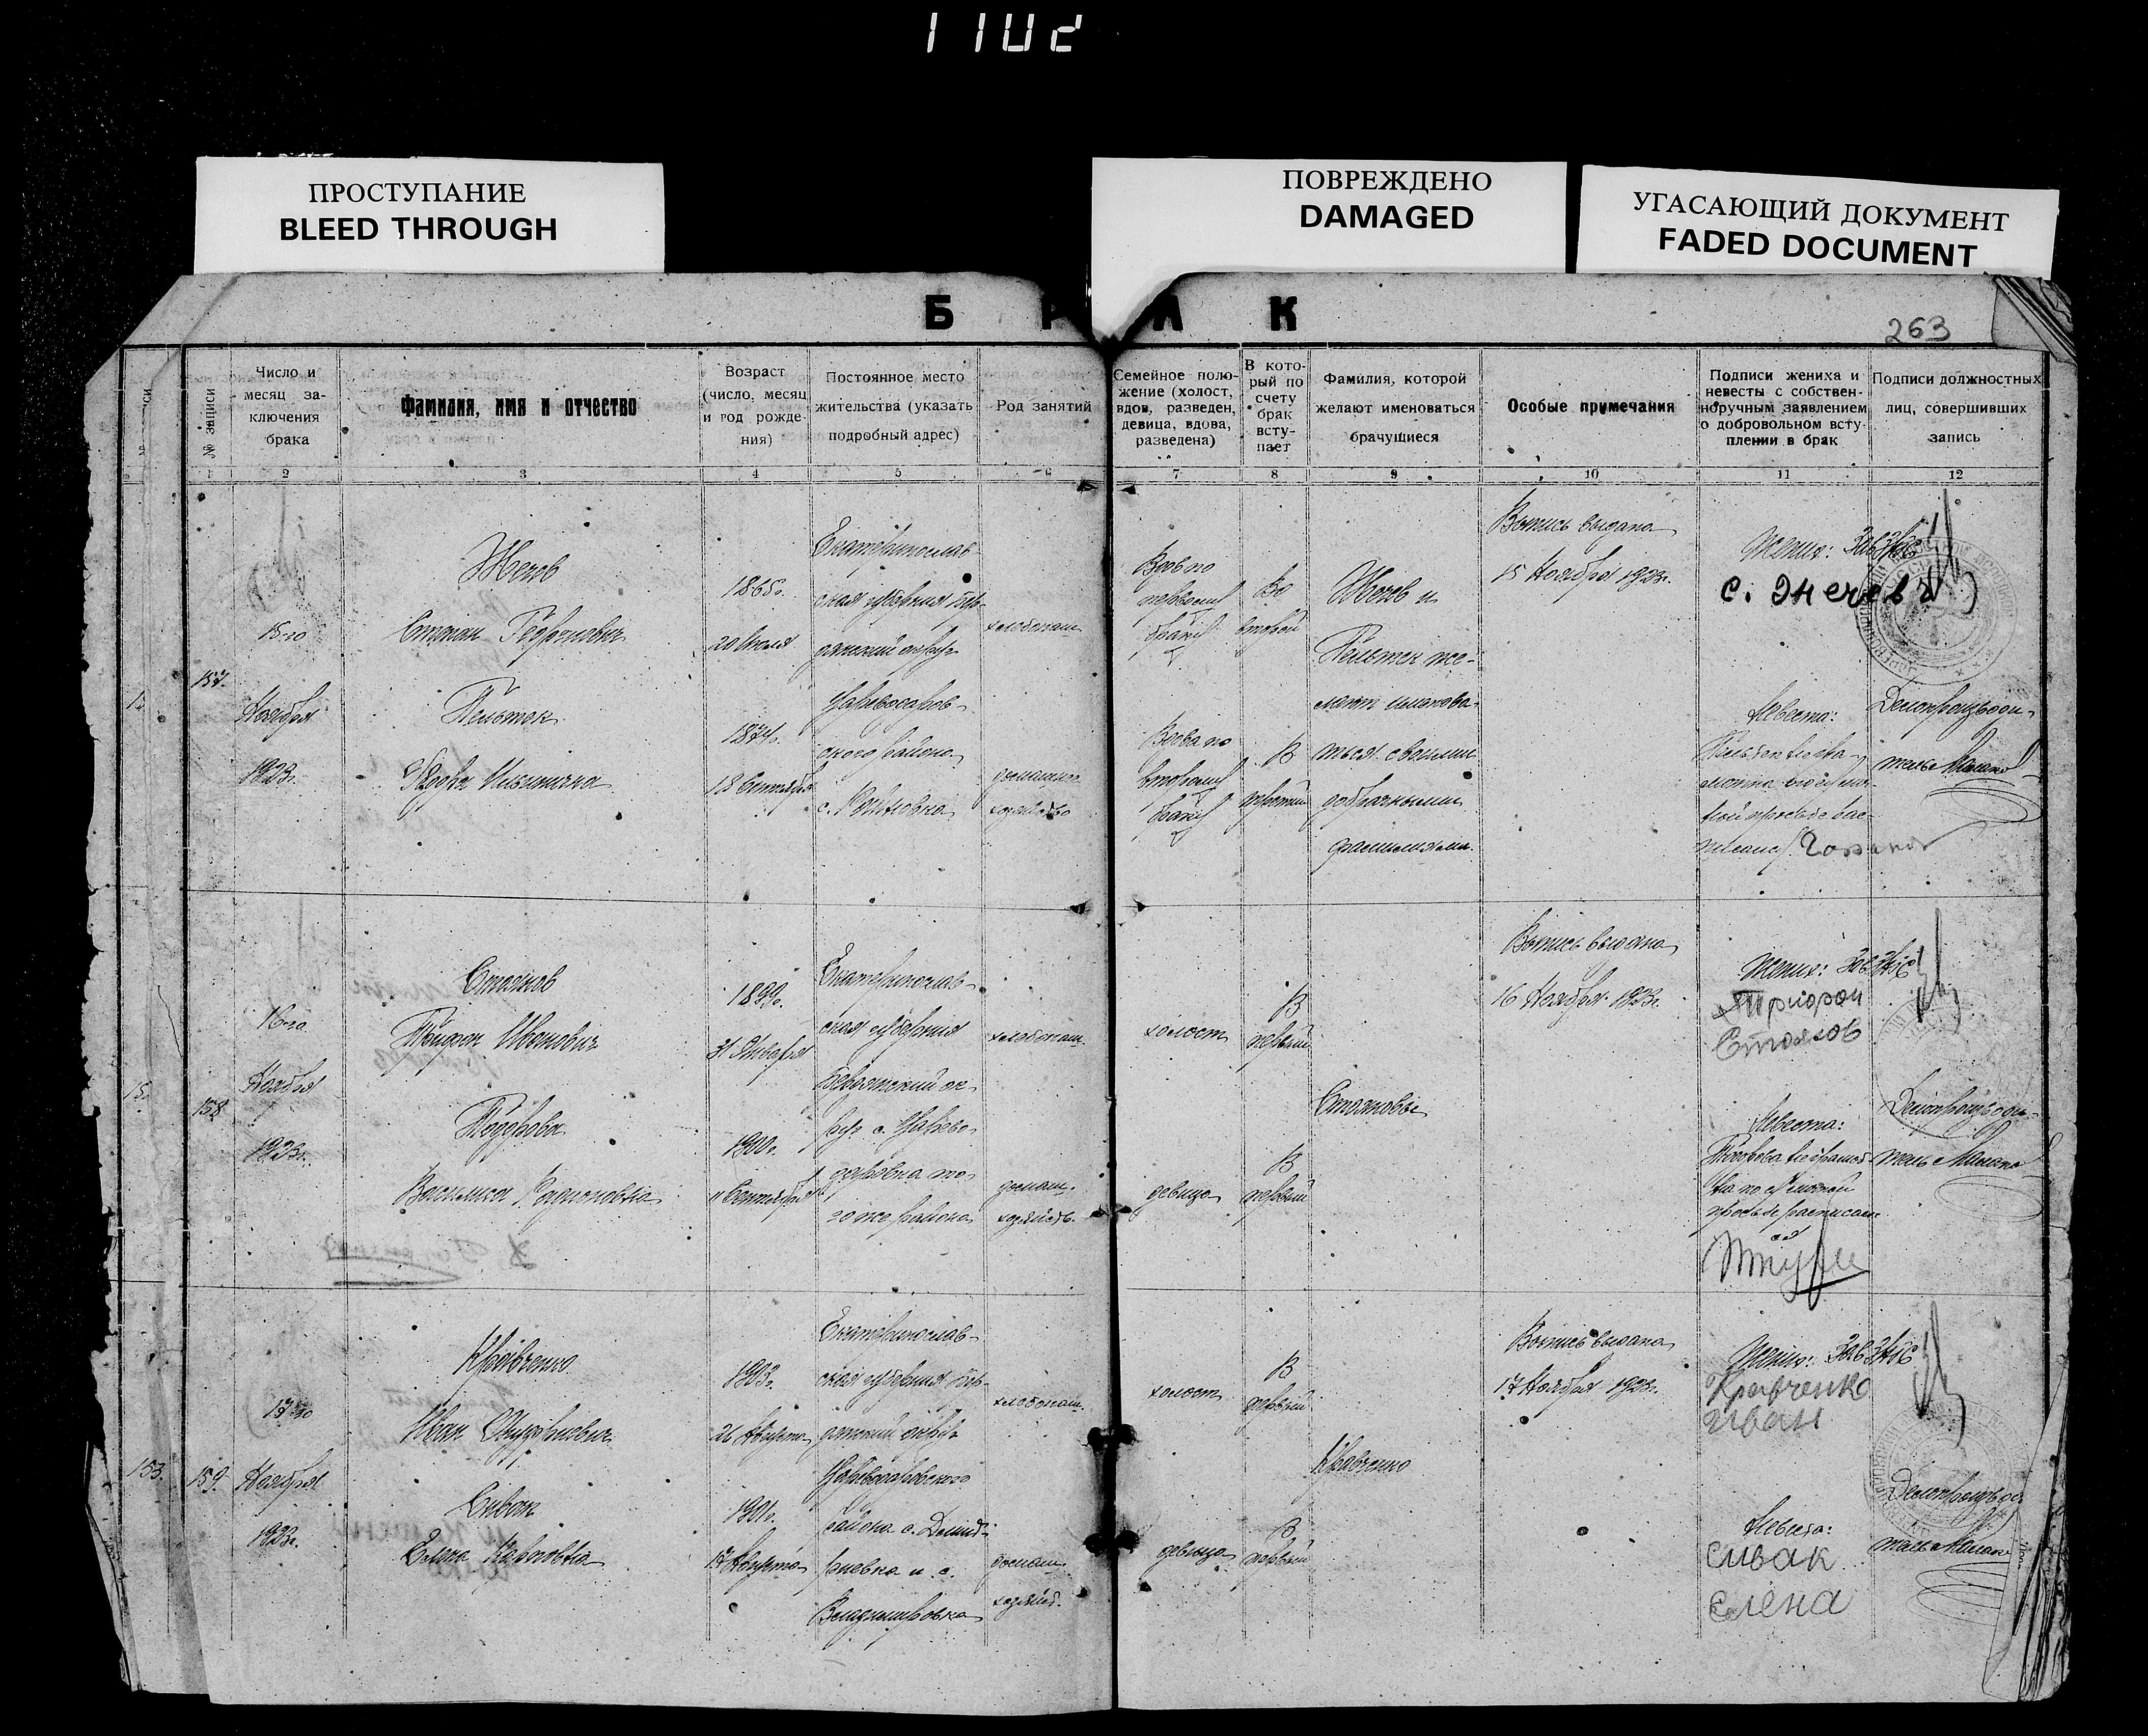 1102
ПРОСТУПАНИЕ
BLEED THROUGH
ПОВРЕЖДЕНО
DAMAGED
УГАСАЮЩИЙ ДОКУМЕНТ
FADED DOCUMENT
Б Р А К
263
№ записи
Число и
месяц за-
ключения
брака
Фамилия, имя и отчество
Возраст
(число, месяц
и год рожде-
ния)
Постоянное место
жительства (указать
подробный адрес)
Род занятий
Семейное поло-
жение (холост,
вдов, разведен,
девица, вдова,
разведена)
В кото-
рый по
счету
брак
всту-
пает
Фамилия, которой
желают именоваться
брачущиеся
Особые примечания
Подписи жениха и
невесты с собствен-
норучным заявлением
о добровольном всту-
плении в брак
Подписи должностных
лиц, совершивших
запись
1 2 3 4 5 6 7 8 9 10 11 12
157.
15-го
Ноября
1923г.
Жечев
Степан
Пельтек
Федора Ильинична
1865г.
20 Июля
1874г.
18 Сентября
Екатеринослав-
ская губерния Бер-
дянский округ
Цареводаров-
ского района
с.
хлебопаш.
домашнее
хозяйство
Вдов по
первому
браку
Вдова по
второму
браку
Во
второй
В
третий
Жечев и
Пельтек же-
лают именова-
ться своими
добрачными
фамилиями.
Выпись выдана
15 Ноября 1923г.
Жених:
с. Жечев
Невеста:
Пельтек
Зав. ЗАГС
Делопроизводи-
тель
158
16-го
Ноября
1923г.
Стоянов
Трифон Иванович
Тодорова
Василиса Родионовна
1899г.
31 Января
1900г.
11 Сентября
Екатеринослав-
ская губерния
Бердянский ок-
руг с. Царево-
даровка то-
го же района
хлебопаш.
домаш.
хозяйств.
холост
девица
В
первый
В
первый
Стояновы
Выпись выдана
16 Ноября 1923г.
Жених:
Трифон
Стоянов
Невеста:
Тодорова неграмот-
ная по её личной
просьбе расписался
Зав. ЗАГС
Делопроизводи-
тель
153.
159.
17-го
Ноября
1923г.
Кравченко
Иван Онуфриевич
Сивак
Елена Карповна
1903г.
26 Августа
1901г.
17 Августа
Екатеринослав-
ская губерния Бер-
дянский округ
Цареводаровского
района с. Дмит-
риевка и с.
Владимировка
хлебопаш.
домаш.
хозяйст.
холост
девица
В
первый
В
первый
Кравченко
Выпись выдана
17 Ноября 1923г.
Жених:
Кравченко
Иван
Невеста:
Сивак
Елена
Зав. ЗАГС
Делопроизводи-
тель